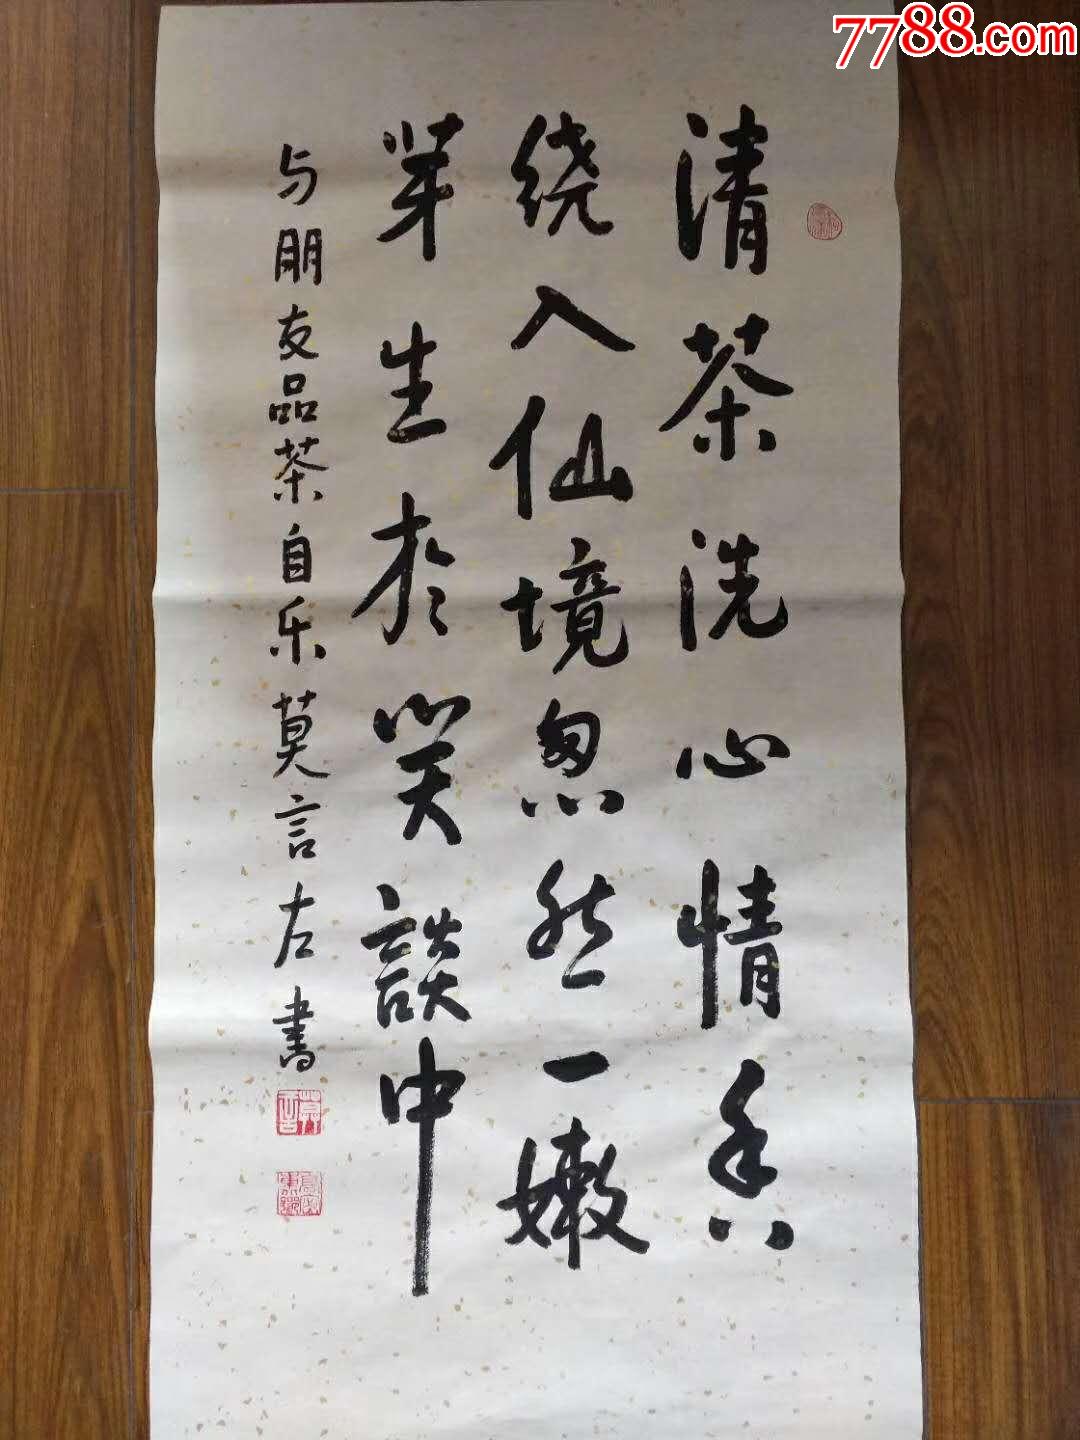 7788.com
清茶洗心情香
绕入仙境忽然一嫩
芽生於笑談中
与朋友品茶自乐莫言左书
莫言